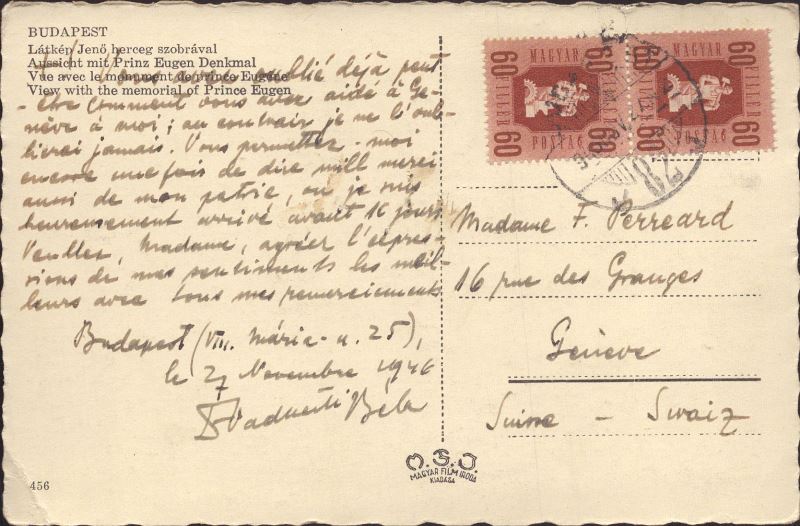 BUDAPEST
Látkép Jenő herceg szobrával
Aussicht mit Prinz Eugen Denkmal
Vue avec le monument de prince Eugène
View with the memorial of Prince Eugen
oublié déjà peut
-être comment vous avez aidé à Ge-
nève à moi; au contrair je ne l'oub-
lirai jamais. Vous permettez-moi
encore une fois de dire mill merci
aussi de mon patrie, où je suis
heureusement arrivé avant 16 jours
Veuillez, Madame, agréer l'expres-
sions de mes sentiments les meil-
leurs avec tous mes remerciements
Budapest (VIII. Mária-u. 25),
le 27 Novembre 1946
Béla
456
60 MAGYAR 60
60 POSTA 60
FILLÉR
60 MAGYAR 60
60 POSTA 60
FILLÉR
Madame F. Perreard
16 rue des Granges
Genève
Suisse – Svaiz
M.F.I.
MAGYAR FILM IRODA
KIADÁSA